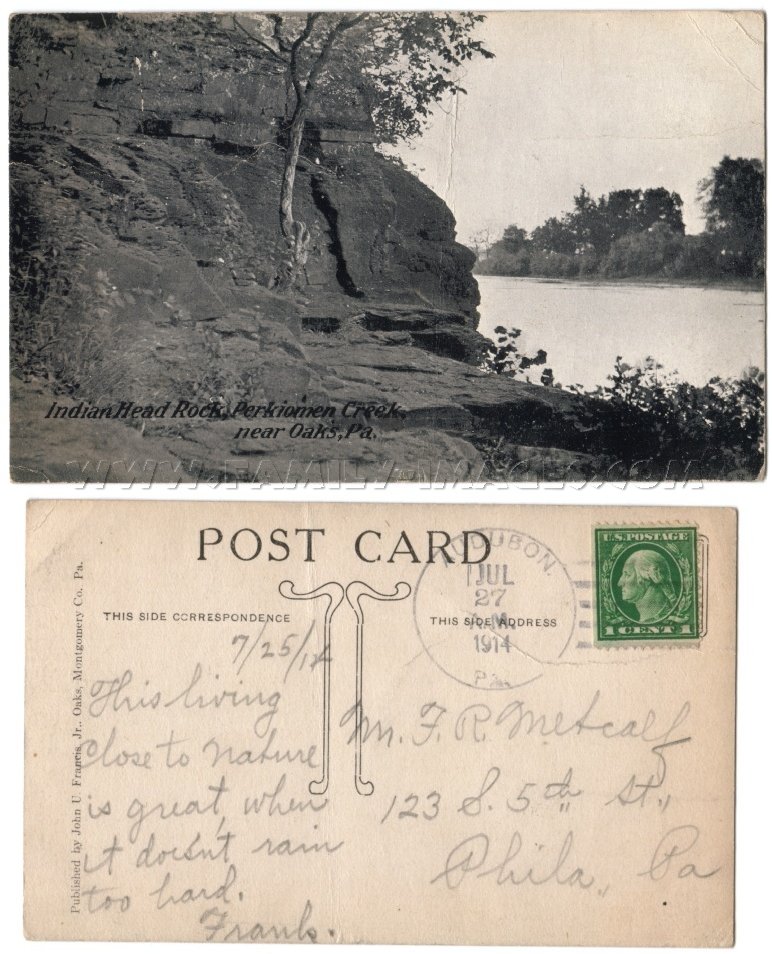 Indian Head Rock, Perkiomen Creek,
near Oaks, Pa.
WWW.FAMILY-IMAGES.COM
POST CARD
THIS SIDE CORRESPONDENCE
THIS SIDE ADDRESS
AUDUBON.
JUL
27
A.M.
1914
PA.
U.S. POSTAGE
1 CENT 1
Published by John U. Francis, Jr., Oaks, Montgomery Co. Pa.
7/25/14
This living
close to nature
is great, when
it doesn't rain
too hard.
Frank.
Mr. F. R. Metcalf
123 S. 5th St.,
Phila., Pa